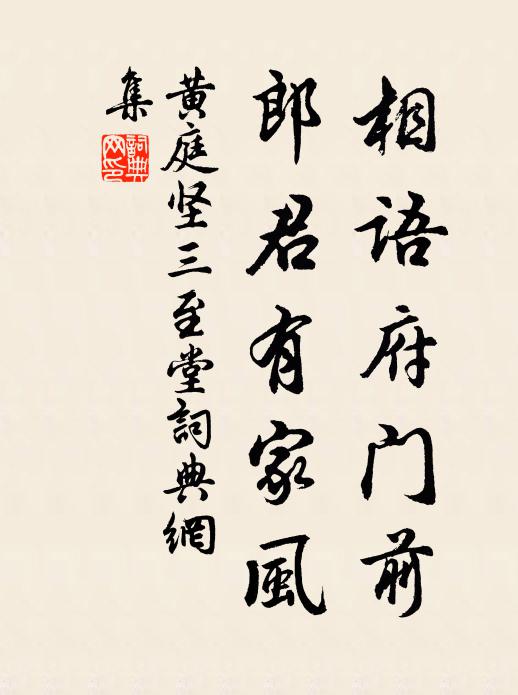 相语府门前
郎君有家風
黄庭坚三至堂詞典網
集
詞典
网印